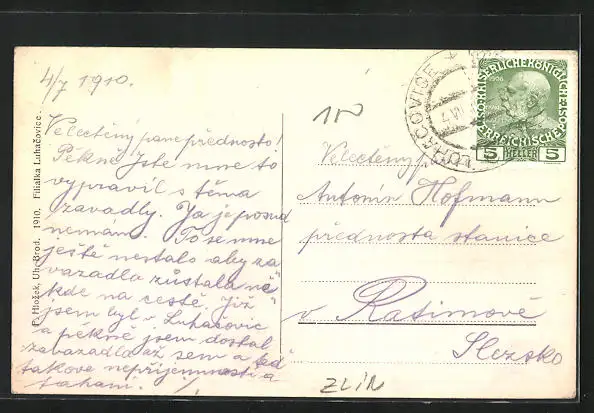 4/7 1910.
Velectěný pane přednosto!
Pěkně jste mne to
vypravil s těma
zavadly. Ja je posud
nemám. To se mne
ještě nestalo aby za
vazadla zůstala ně
kde na cestě. Již
jsem byl v Luhačovic
a pěkně jsem dostal
zavazadla až sem a teď
takové nepříjemnosti a
tahani.
F. Hložek, Uh. Brod. 1910. Filialka Luhačovice.
LUHAČOVICE
KAISERLICHEKÖNIGLICHE
ÖSTERREICHISCHE POST
5 HELLER 5
Velectěný pan
Antonín Hofmann
přednosta stanice
v Ratimově
Slezsko
ZLÍN